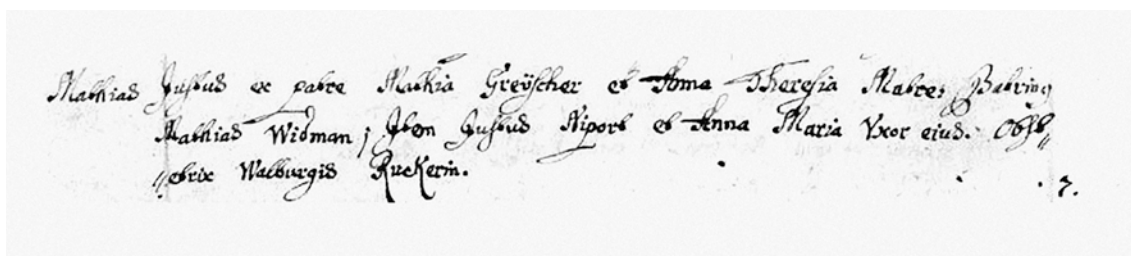 Mathias Justus ex patre Mathia Greÿscher et Anna Theresia Matre: Patrin9
Mathias Widman; Item Justus Niport et Anna Maria Vxor eius. Obst„
„etrix Walburgis Ruckerin.
7.